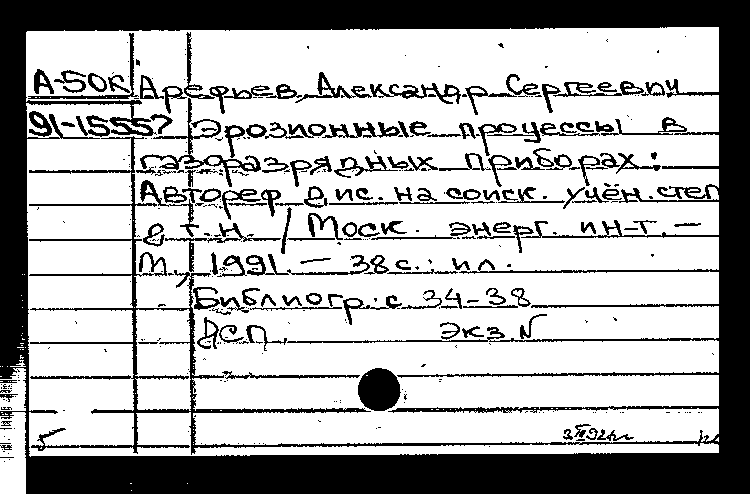 А-50к Арефьев, Александр Сергеевич
91-15557 Эрозионные процессы в
газоразрядных приборах:
Автореф дис. на соиск. учён. степ
д.т.н. / Моск. энерг. ин-т. –
М., 1991. – 38 с.: ил.
Библиогр.: с. 34-38
ДСП. Экз. N
5